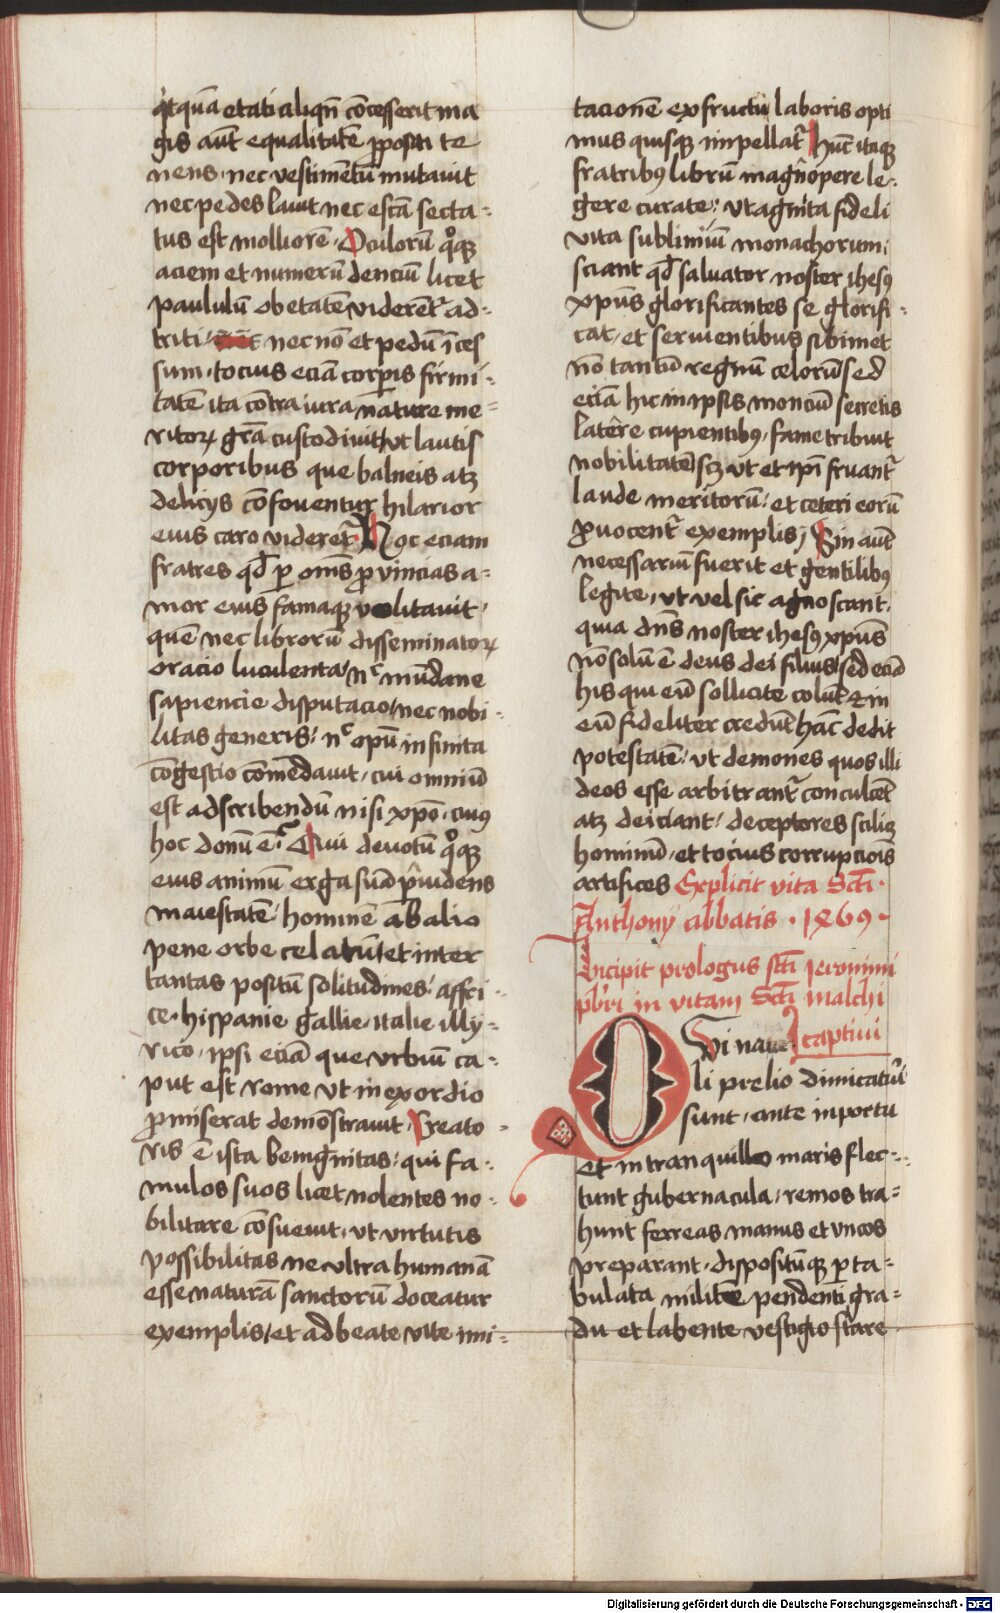 qͥtquā etati aliqñ cōcesserit ma
gis aūt equalitatē ꝓpositi te
nens · nec vestimētū mutauit
nec pedes lauit nec escā secta-
tus est molliorē · Oculorū qͦqꝫ
aciem et numerū denciū licet
paululū ob etatē viderētᷣ ad-
triti · nec nō et pedū īces
sum · tocius eciā corꝑis firmi-
tatē ita cōtra iura nature me-
ritoꝝ grā custodiuit / vt lautis
corporibus que balneis atꝫ
delicijs cōfouentur hilarior
eius caro videretᷣ · Hoc eciam
fratres qđ ꝑ om̄s ꝓvincias a-
mor eius famaqꝫ volitauit ·
quē nec librorū disseminatoꝝ
oracio luculenta / nͨ mūdane
sapiencie disputacio / nec nobi-
litas generis / nͨ opū infinita
cōgestio cōmēdauit / cui omniū
est adscribendū nisi xp̄o · cuiꝯ
hoc donū ē · Qui deuotū qͦqꝫ
eius animū erga suā p̄uidens
maiestatē / hominē ab alio
pene orbe celatū / et inter
tantas positū solitudines / affri-
ce · hispanie gallie italie illy-
rico · ipsi eciā que vrbiū ca-
put est rome vt in exordio
ꝓmiserat demōstrauit · Creato-
ris ē ista benignitas / qui fa-
mulos suos licet nolentes no-
bilitare cōsueuit · vt virtutis
possibilitas ne vltra humanā
esse naturā sanctorū doceatur
exemplis / et ad beate vite imi-
tacionē ex fructu laboris opti
mus quisqꝫ impellatᷣ Hūc itaqꝫ
fratribꝯ librū magn̄opere le-
gere curate / vt agnita fideli
vita sublimiū monachorum
sciant qđ saluator noster ihesꝯ
xpūs glorificantes se glorifi-
cat · et seruientibus sibimet
nō tantū regnū celorū sed
eciā hic in ipsis monciū secretis
latēre cupientibꝯ · fame tribuit
nobilitatē scꝫ vt et ip̄i fruantᷣ
laude meritorū / et ceteri eorū
ꝓuocentᷣ exemplis / Sin aūt
necessariū fuerit et gentilibꝯ
legite · vt vel sic agnoscant ·
quia dn̄s noster ihesꝯ xpūs
nō solū ē deus dei filius / sed eciā
his qui eū sollicite colūt & in
eū fideliter credūt hāc dedit
potestatē / vt demones quos illi
deos esse arbitrantᷣ conculcēt
atꝫ deiciant / deceptores scilicꝫ
hominū · et tocius corrupcōis
artifices Explicit vita Sctī ·
Anthonij abbatis · 1469 ·
Incipit prologus sctī Jeronimi
pb̄ri in vitam Sctī malchi
captiui
QVi naua
li prelio dimicaturi
sunt · ante in portu
et in tranquillo maris flec-
tunt gubernacula / remos tra-
hunt ferreas manus et vncos
preparant · dispositūqꝫ ꝑ ta-
bulata militē pendenti gra-
du et labente vestigio stare